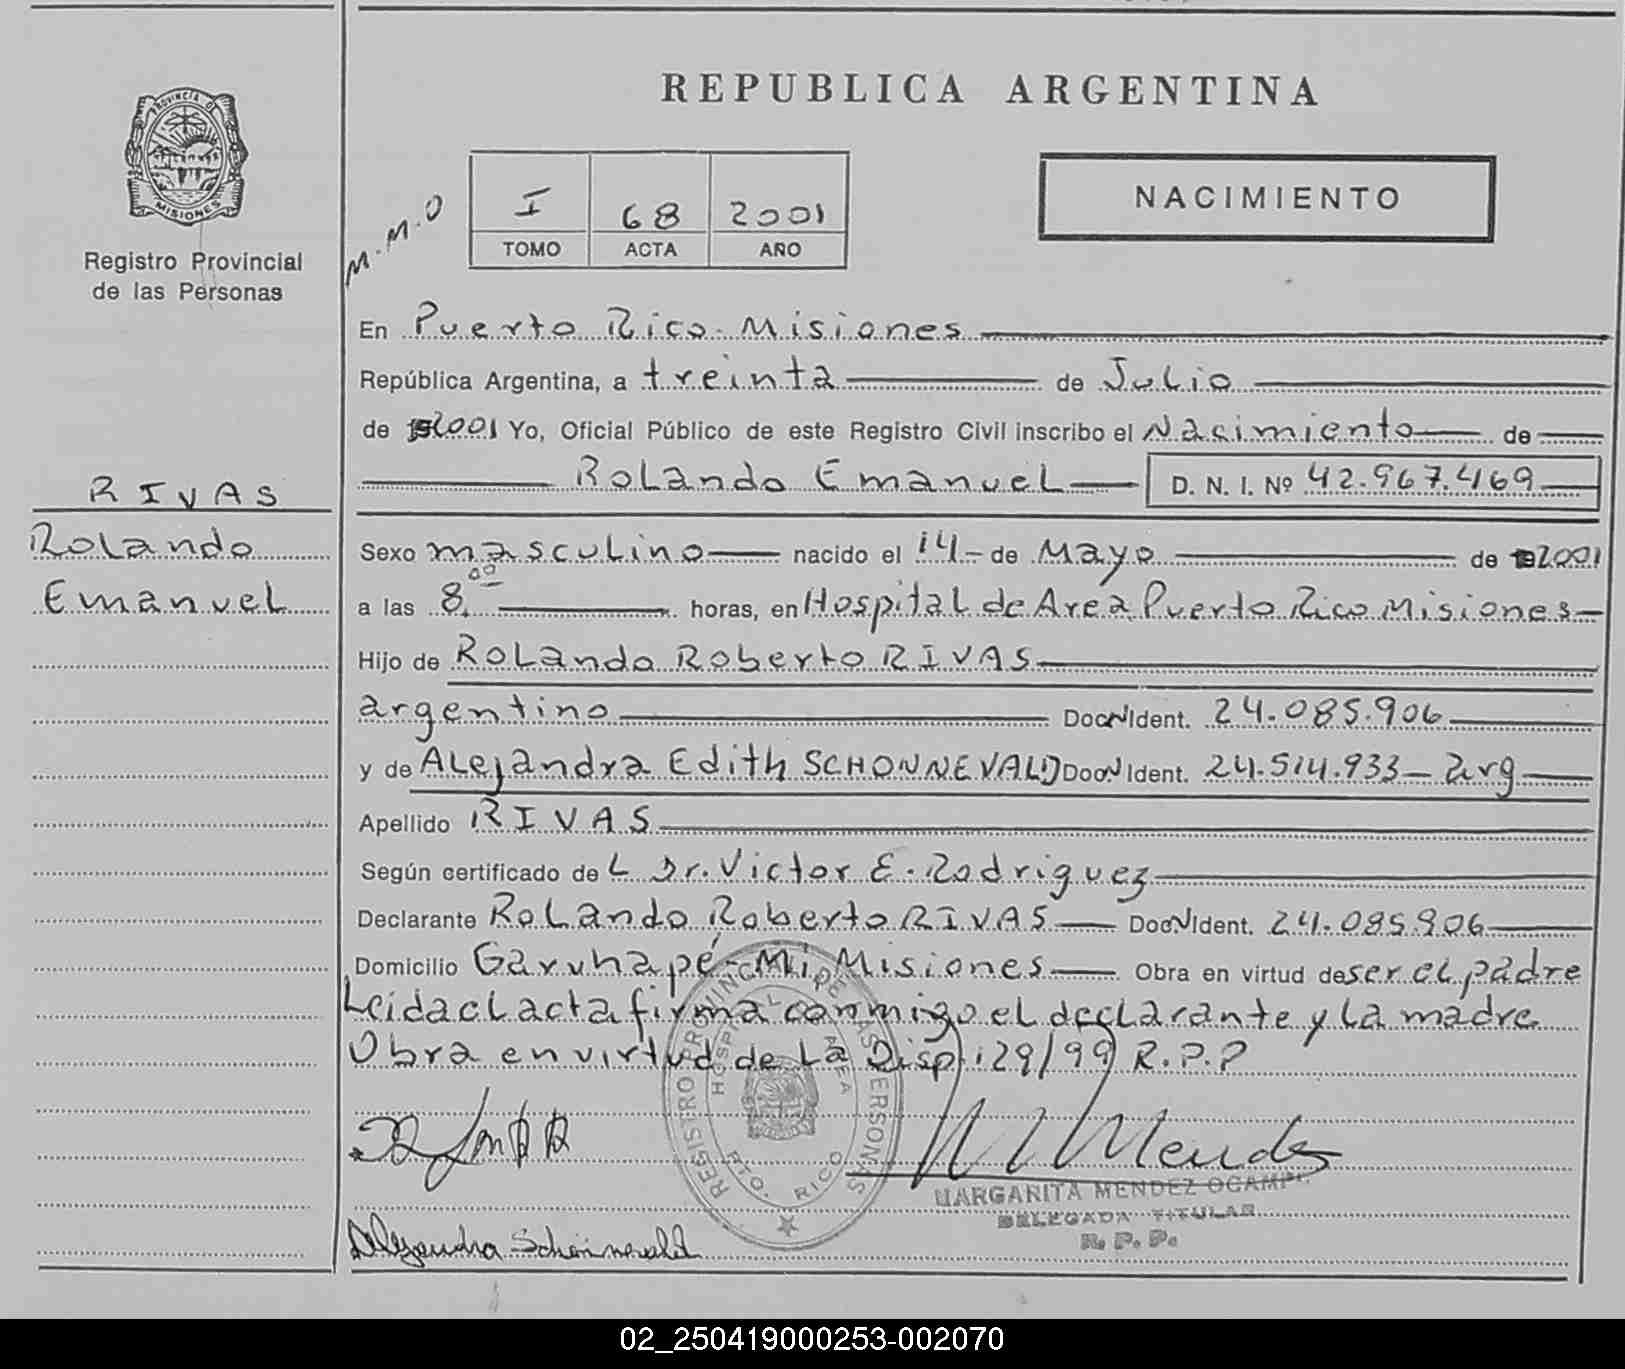 REPUBLICA ARGENTINA
PROVINCIA D
MISIONES
Registro Provincial
de las Personas
M.M.O
I 68 2001
TOMO ACTA AÑO
NACIMIENTO
RIVAS
Rolando
Emanuel
En Puerto Rico - Misiones
República Argentina, a treinta de Julio
de 2001 Yo, Oficial Público de este Registro Civil inscribo el Nacimiento de
Rolando Emanuel D. N. I. Nº 42.967.469
Sexo masculino nacido el 14 - de Mayo de 2001
a las 8.00 horas, en Hospital de Area Puerto Rico Misiones
Hijo de Rolando Roberto RIVAS
argentino Doc N Ident. 24.085.906
y de Alejandra Edith SCHONNEVALD Doc N Ident. 24.514.933 - arg
Apellido RIVAS
Según certificado del Dr. Victor E. Rodriguez
Declarante Rolando Roberto RIVAS Doc N Ident. 24.085.906
Domicilio Garuhapé - Mi, Misiones Obra en virtud de ser el padre
Leida el acta firma conmigo el declarante y la madre
Obra en virtud de la Disp: 29/99 R.P.P
REGISTRO PROVINCIAL DE LAS PERSONAS
HOSPITAL AREA
PTO. RICO
Mendez
MARGARITA MENDEZ OCAMPO
DELEGADA TITULAR
R. P. P.
Alejandra Schönnevald
02_250419000253-002070